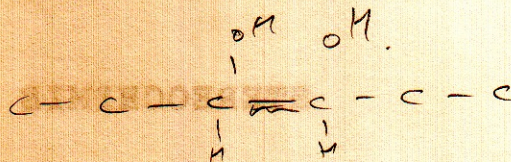 OH OH.
C - C - C = C - C - C
H H